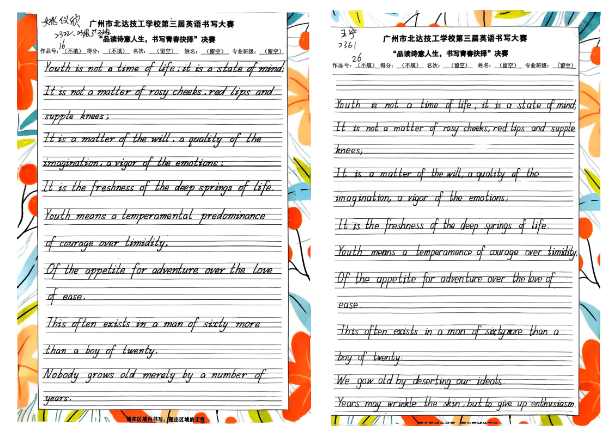 广州市北达技工学校第三届英语书写大赛
"品读诗意人生，书写青春抉择" 决赛
作品号： 16 （不填） 得分： （不填） 名次： （留空） 姓名： （留空） 专业班级： （留空）
Youth is not a time of life; it is a state of mind;
It is not a matter of rosy cheeks, red lips and
supple knees;
It is a matter of the will, a quality of the
imagination, a vigor of the emotions;
It is the freshness of the deep springs of life.
Youth means a temperamental predominance
of courage over timidity,
Of the appetite for adventure over the love
of ease.
This often exists in a man of sixty more
than a boy of twenty.
Nobody grows old merely by a number of
years.
2361
广州市北达技工学校第三届英语书写大赛
"品读诗意人生，书写青春抉择" 决赛
作品号： 26 （不填） 得分： （不填） 名次： （留空） 姓名： （留空） 专业班级： （留空）
Youth is not a time of life; it is a state of mind;
It is not a matter of rosy cheeks, red lips and supple
knees;
It is a matter of the will, a quality of the
imagination, a vigor of the emotions;
It is the freshness of the deep springs of life.
Youth means a temperamence of courage over timidity
Of the appetite for adventure over the love of
ease.
This often exists in a man of sixty more than a
boy of twenty
We gow old by deserting our ideals.
Years may wrinkle the skin, but to give up enthusiasm